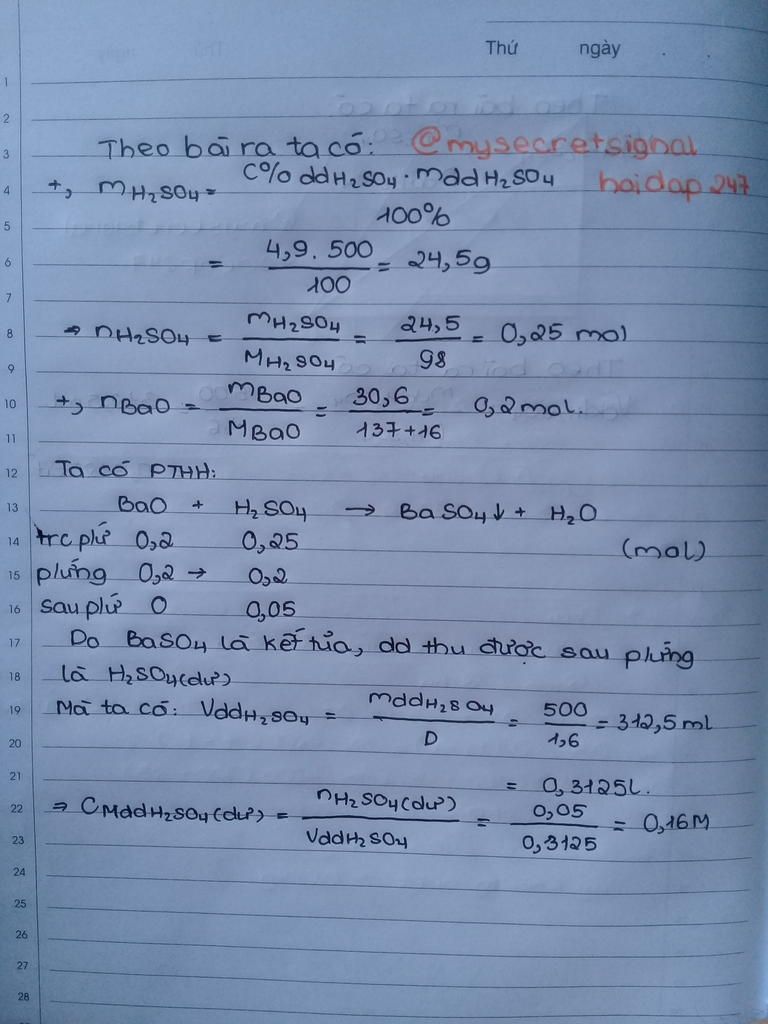 Thứ ngày . .
1
2
3 Theo bài ra ta có: @mysecretsignal
4 +, mH₂SO₄ = C% ddH₂SO₄ . mddH₂SO₄ hoidap247
5 100%
6 = 4,9 . 500 / 100 = 24,5g
7
8 → nH₂SO₄ = mH₂SO₄ / MH₂SO₄ = 24,5 / 98 = 0,25 mol
9
10 +, nBaO = mBaO / MBaO = 30,6 / 137+16 = 0,2mol.
11
12 Ta có PTHH:
13 BaO + H₂SO₄ → BaSO₄↓ + H₂O
14 trc pứ 0,2 0,25 (mol)
15 pứng 0,2 → 0,2
16 sau pứ 0 0,05
17 Do BaSO₄ là kết tủa, dd thu được sau pứng
18 là H₂SO₄(dư)
19 Mà ta có: VddH₂SO₄ = mddH₂SO₄ / D = 500 / 1,6 = 312,5ml
20
21 = 0,3125L.
22 ⇒ CMddH₂SO₄(dư) = nH₂SO₄(dư) / VddH₂SO₄ = 0,05 / 0,3125 = 0,16M
23
24
25
26
27
28